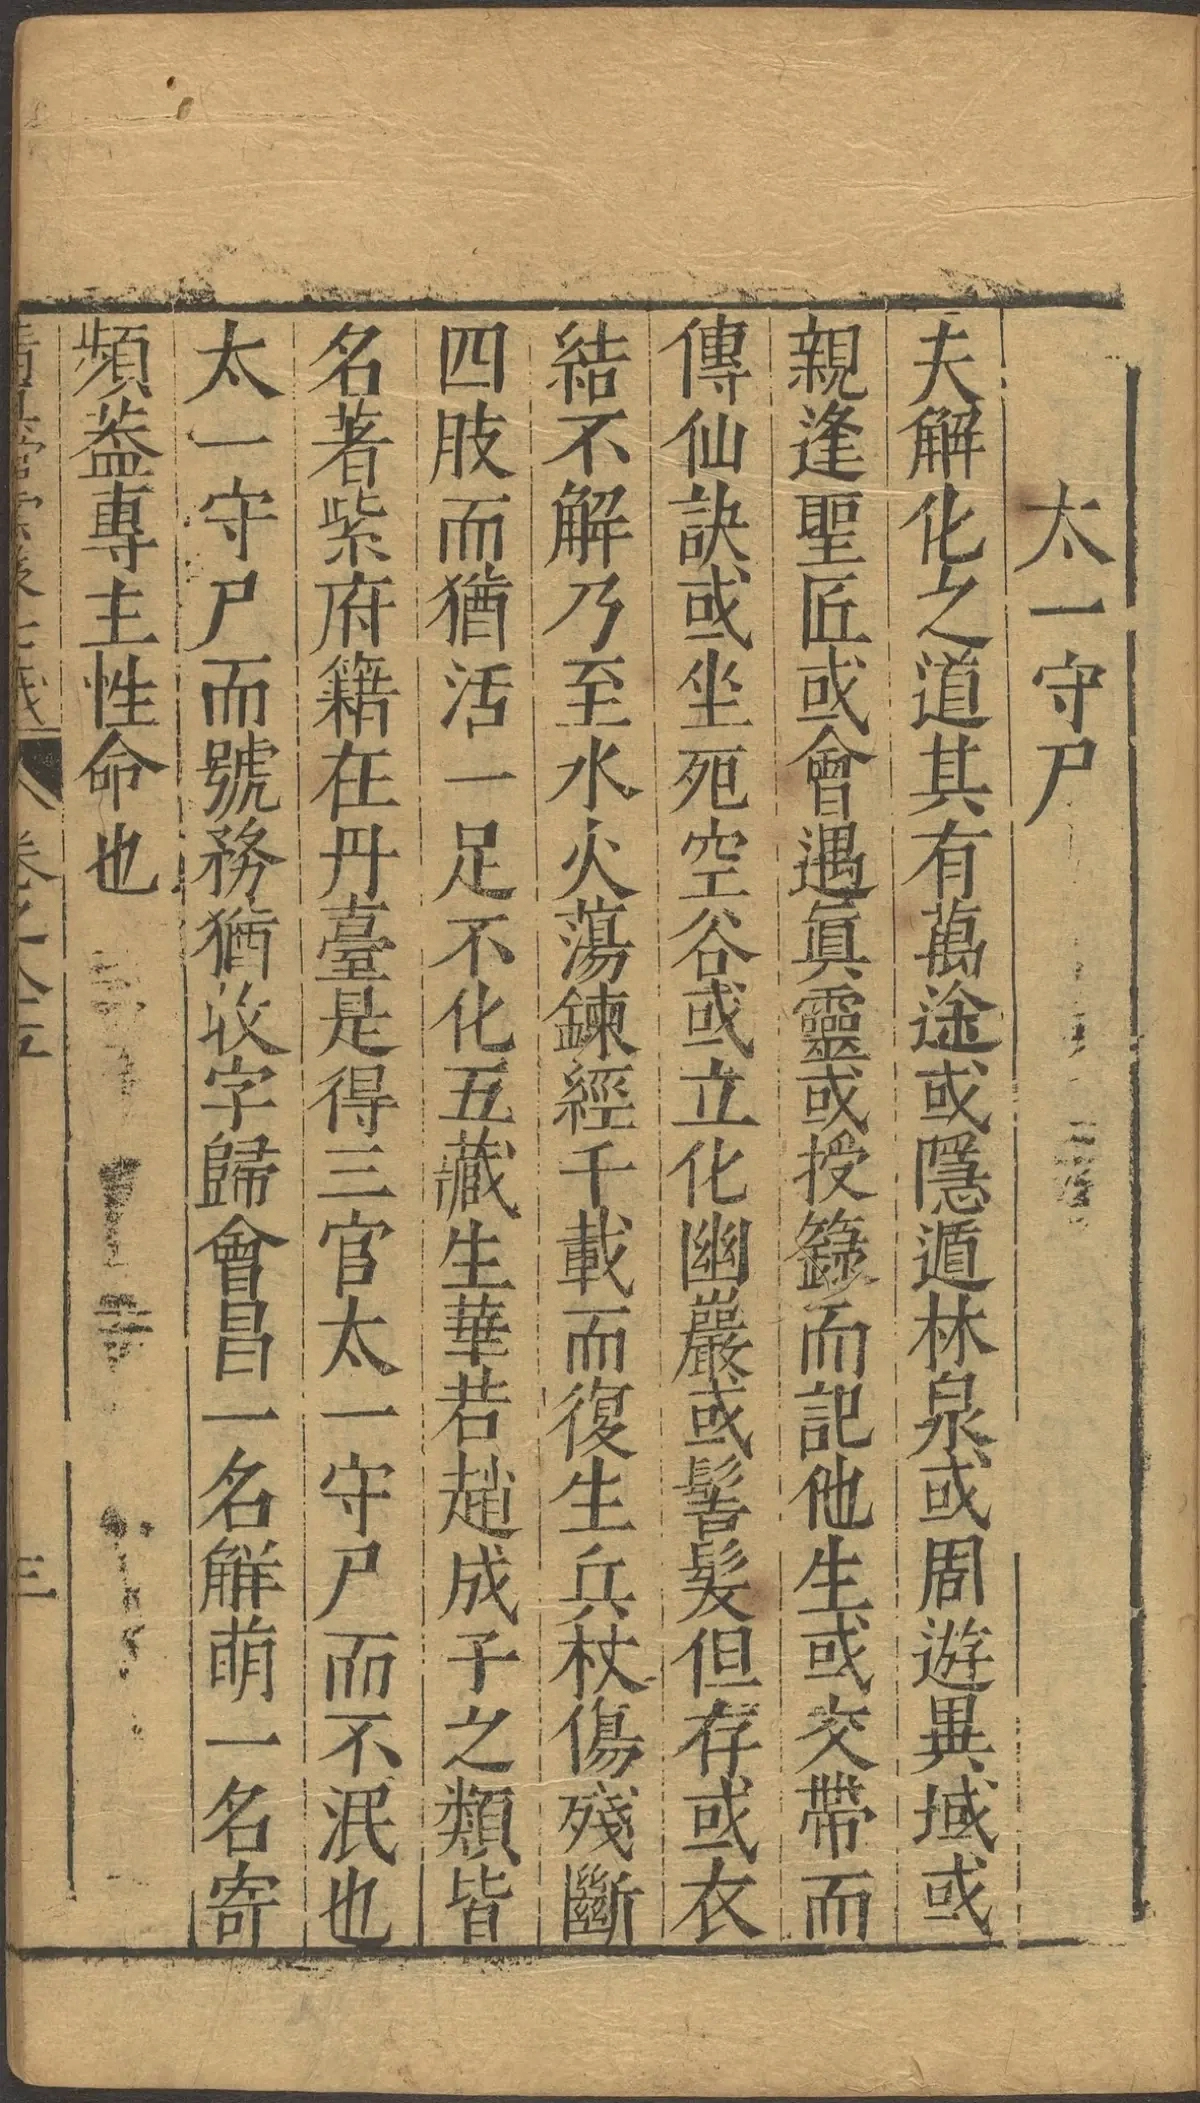 太一守尸
夫解化之道其有萬途或隱遁林泉或周遊異域或
親逢聖匠或會遇眞靈或授籙而記他生或交帶而
傳仙訣或坐死空谷或立化幽巖或髻髮但存或衣
結不解乃至水火蕩鍊經千載而復生兵杖傷殘斷
四肢而猶活一足不化五藏生華若趙成子之類皆
名著紫府籍在丹臺是得三官太一守尸而不泯也
太一守尸而號務猶收字歸會昌一名解萌一名寄
頻葢專主性命也
卷之八十五
三